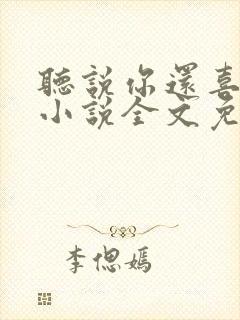 聽說你還喜
小說全文免
李偲嫣